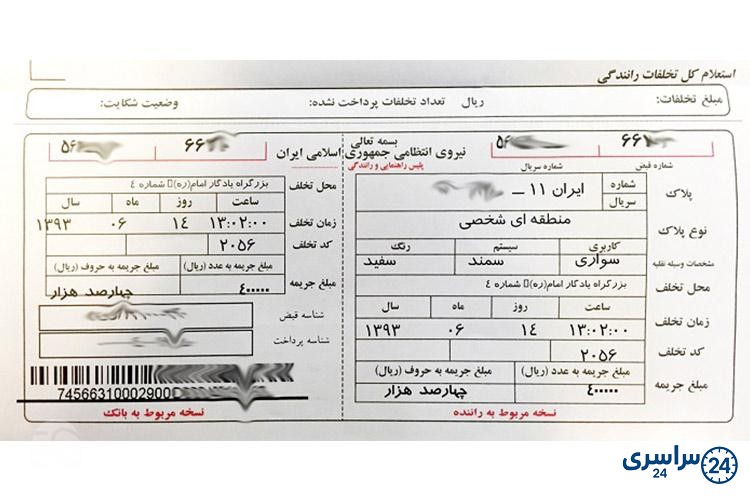 استعلام کل تخلفات رانندگی
مبلغ تخلفات: ریال تعداد تخلفات پرداخت نشده: وضعیت شکایت:
بسمه تعالی
نیروی انتظامی جمهوری اسلامی ایران
پلیس راهنمایی و رانندگی
۶۶ ۵۶
شماره قبض شماره سریال
پلاک شماره سریال ایران ۱۱ ــ
نوع پلاک منطقه ای شخصی
مشخصات وسیله نقلیه کاربری سیستم رنگ
سواری سمند سفید
محل تخلف بزرگراه یادگار امام(ره)▯ شماره ٤
زمان تخلف ساعت روز ماه سال
۱۳:۰۲:۰۰ ۱۴ ۰۶ ۱۳۹۳
کد تخلف ۲۰۵۶
مبلغ جریمه مبلغ جریمه به عدد (ریال) مبلغ جریمه به حروف (ریال)
۴۰۰۰۰۰ چهارصد هزار
نسخه مربوط به راننده
۶۶ ۵۶
محل تخلف بزرگراه یادگار امام(ره)▯ شماره ٤
زمان تخلف ساعت روز ماه سال
۱۳:۰۲:۰۰ ۱۴ ۰۶ ۱۳۹۳
کد تخلف ۲۰۵۶
مبلغ جریمه مبلغ جریمه به عدد (ریال) مبلغ جریمه به حروف (ریال)
۴۰۰۰۰۰ چهارصد هزار
شناسه قبض
شناسه پرداخت
74566310002900
نسخه مربوط به بانک
سراسری 24
24